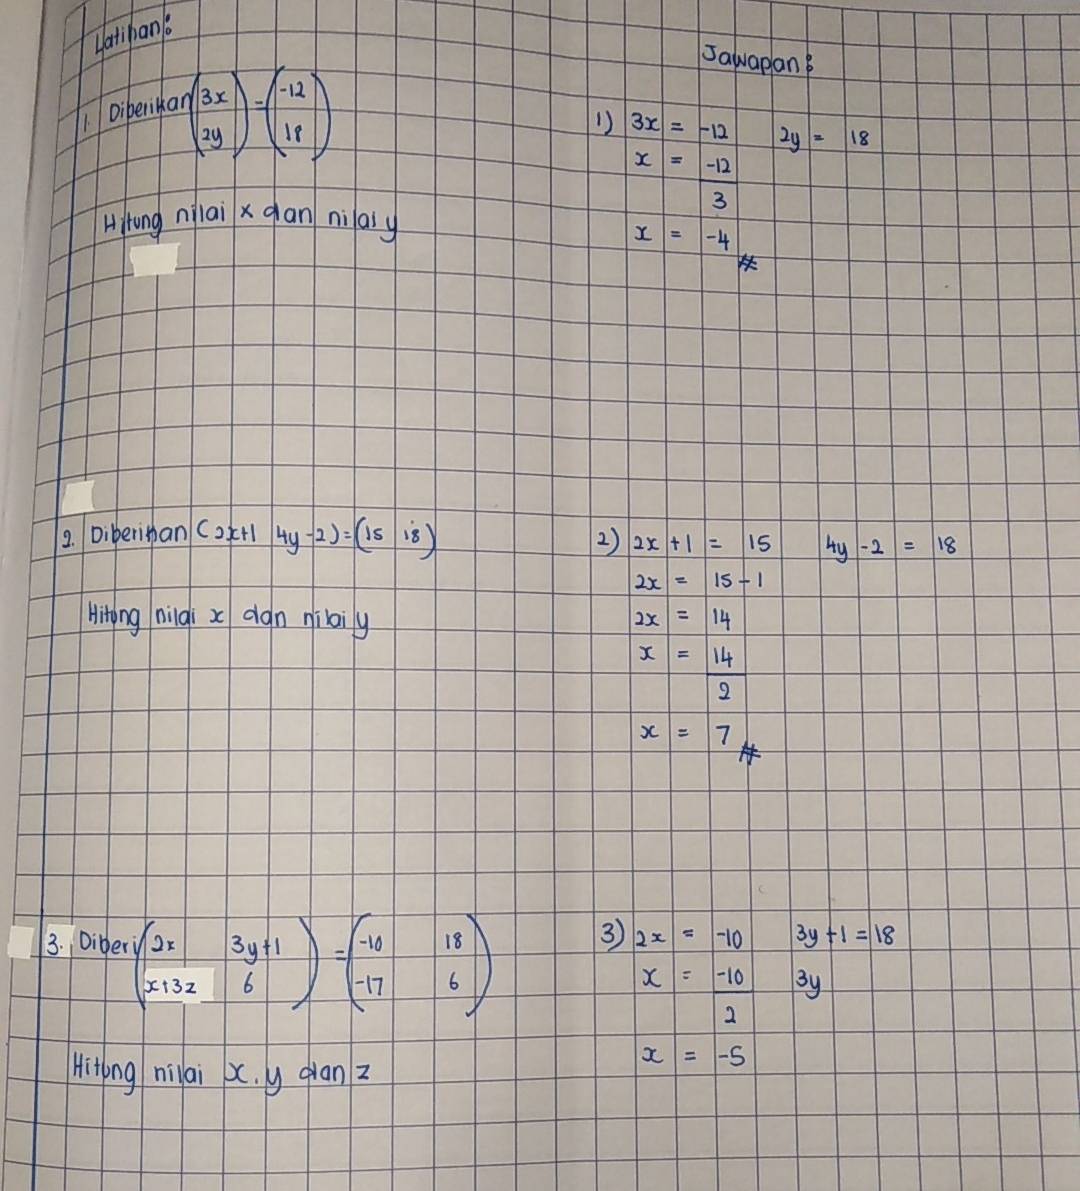 Latihan:
1. Diberikan (3x 2y) = (-12 18)
Hitung nilai x dan nilai y
2. Diberikan (2x+1 4y-2) = (15 18)
Hitung nilai x dan nilai y
3. Diberi (2x 3y+1
x+3z 6) = (-10 18
-17 6)
Hitung nilai x, y dan z
Jawapan:
1) 3x = -12 2y = 18
x = -12
3
x = -4 #
2) 2x + 1 = 15 4y - 2 = 18
2x = 15 - 1
2x = 14
x = 14
2
x = 7 #
3) 2x = -10 3y + 1 = 18
x = -10 3y
2
x = -5